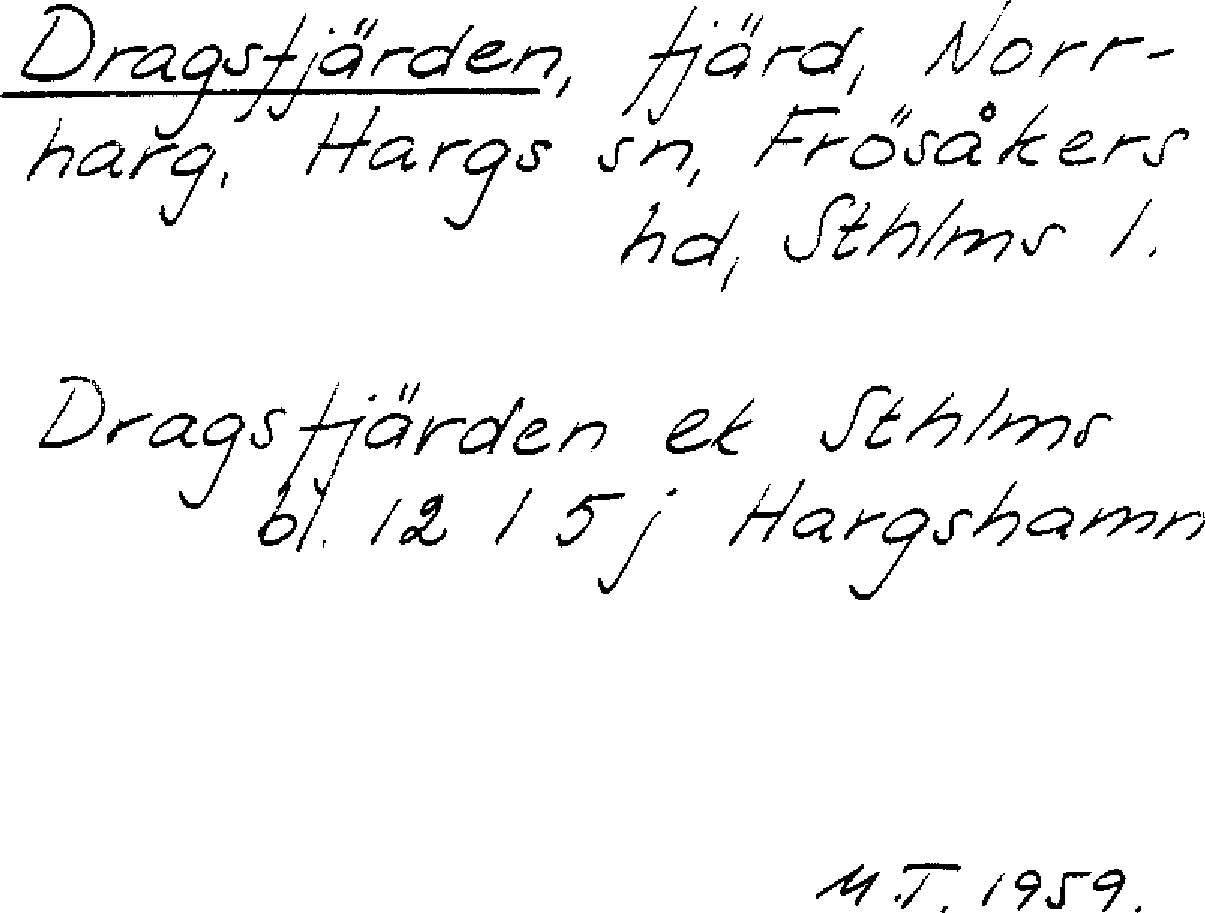 Dragsfjärden, fjärd, Norr-
harg, Hargs sn, Frösåkers
hd, Sthlms l.
Dragsfjärden ek Sthlms
bl. 12 I 5 j Hargshamn
M.T. 1959.